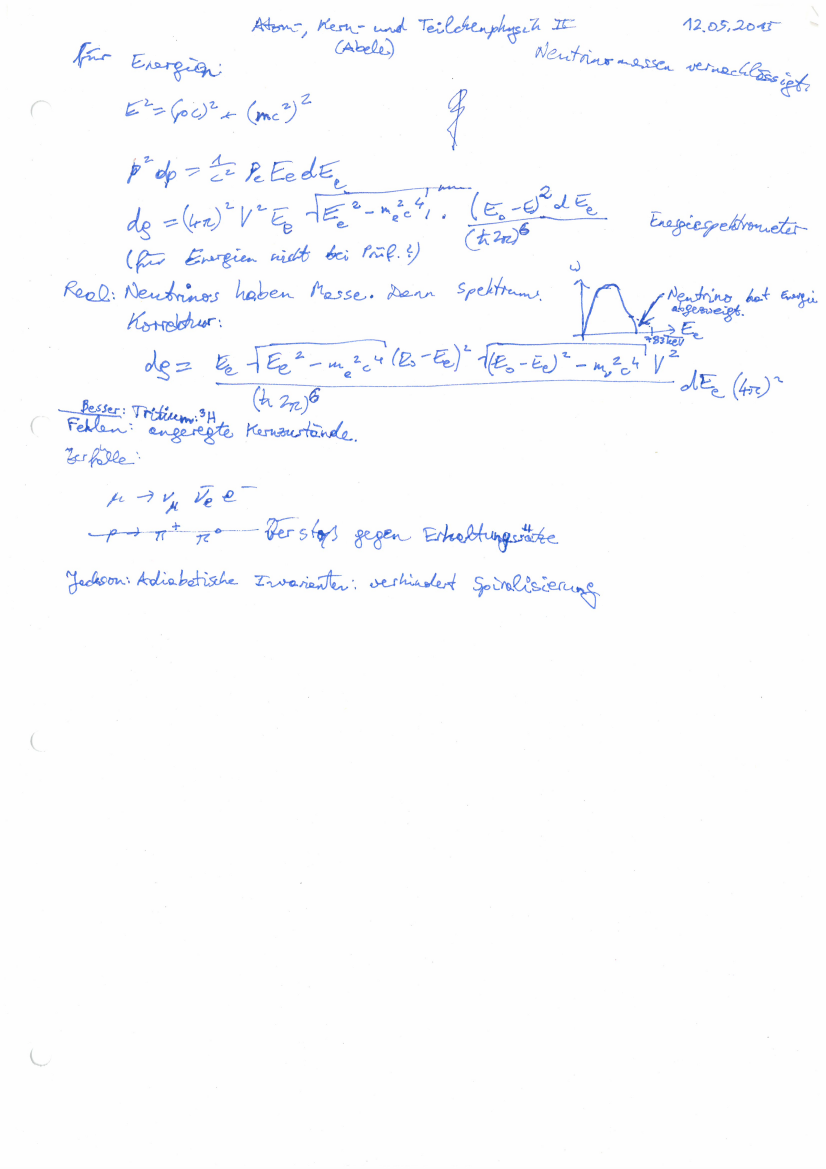 Atom-, Kern- und Teilchenphysik II 12.05.2015
(Abele)
für Energien: Neutrinomassen vernachlässigt.
E² = (pc)² + (mc²)²
p² dp = 1/c² p_e E_e dE_e
dρ = (4π)² V² E_e √(E_e² - m_e²c⁴) · (E_0 - E)² dE_e / (ħ2π)⁶ Energiespektrometer
(für Energien nicht bei Prüf.!)
Real: Neutrinos haben Masse. Dann Spektrum.
Korrektur:
ω Neutrino hat Energie
abgezweigt.
E_e
783keV
dρ = E_e √(E_e² - m_e²c⁴) (E_0 - E_e)² √((E_0 - E_e)² - m_ν²c⁴) V² / (ħ2π)⁶ dE_e (4π)²
Besser: Tritium: ³H
Fehlen: angeregte Kernzustände.
Zerfälle:
μ → ν_μ ν̄_e e⁻
p → π⁺ π⁰ Verstoß gegen Erhaltungssätze
Jackson: Adiabatische Invarianten: verhindert Spiralisierung